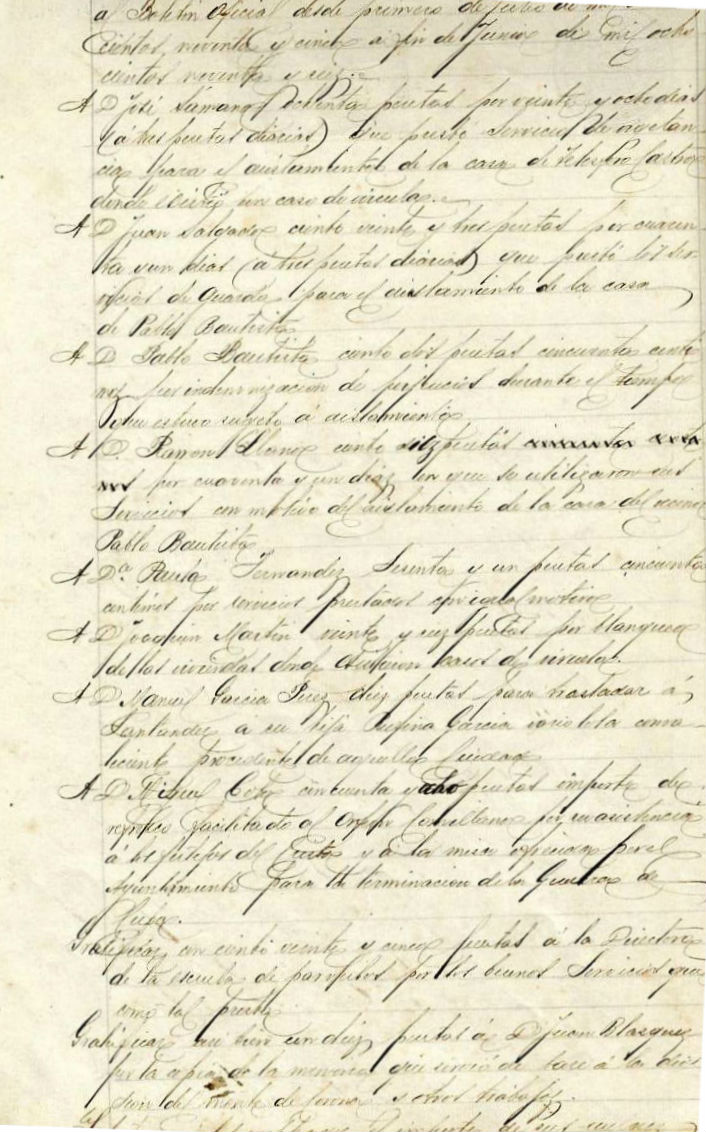 al Boletin Oficial desde primero de Julio de mil
cientos noventa y cinco a fin de Junio de mil ocho
cientos noventa y seis.
A D José Sámano ochenta pesetas por veinte y ocho dias
(á tres pesetas diarias) que prestó servicio de vigilan-
cia para el aislamiento de la casa de Telesforo Castro
donde existió un caso de viruela.
A D Juan Salgado ciento veinte y tres pesetas por cuaren-
ta y un dias (a tres pesetas diarias) que prestó los ser-
vicios de Guarda para el aislamiento de la casa
de Pablo Bautista
A D Pablo Bautista ciento dos pesetas cincuenta centi
mos por indemnizacion de perjuicios durante el tiempo
que estuvo sugeto á aislamiento
A D. Ramon Llano ciento diez pesetas
por cuarenta y un dias en que se utilizaron sus
Servicios con motivo del aislamiento de la casa del vecino
Pablo Bautista
A Dª Paula Fernandez Sesenta y un pesetas cincuenta
centimos por servicios prestados por igual motivo
A D Joaquin Martin veinte y seis pesetas por blanqueo
de las viviendas donde existieron casos de viruela.
A D Manuel Garcia Perez diez pesetas para trasladar á
Santander á su hija Rufina Garcia variolosa conva-
leciente procedente de aquella Ciudad
A D Miguel Cote cincuenta y ocho pesetas importe de
refresco facilitado al Orfeon Castellano por su asistencia
á los festejos del Corito y á la misa oficiada por el
Ayuntamiento para la terminacion de la Guerra de
Cuba.
Gratificar con ciento veinte y cinco pesetas á la Directora
de la escuela de parvulos por los buenos Servicios que
como tal presta
Gratificar asi bien con diez pesetas á D Juan Blasquez
por la copia de la memoria que sirvió de base á la
del monte de y otros trabajos.
el importe de sus